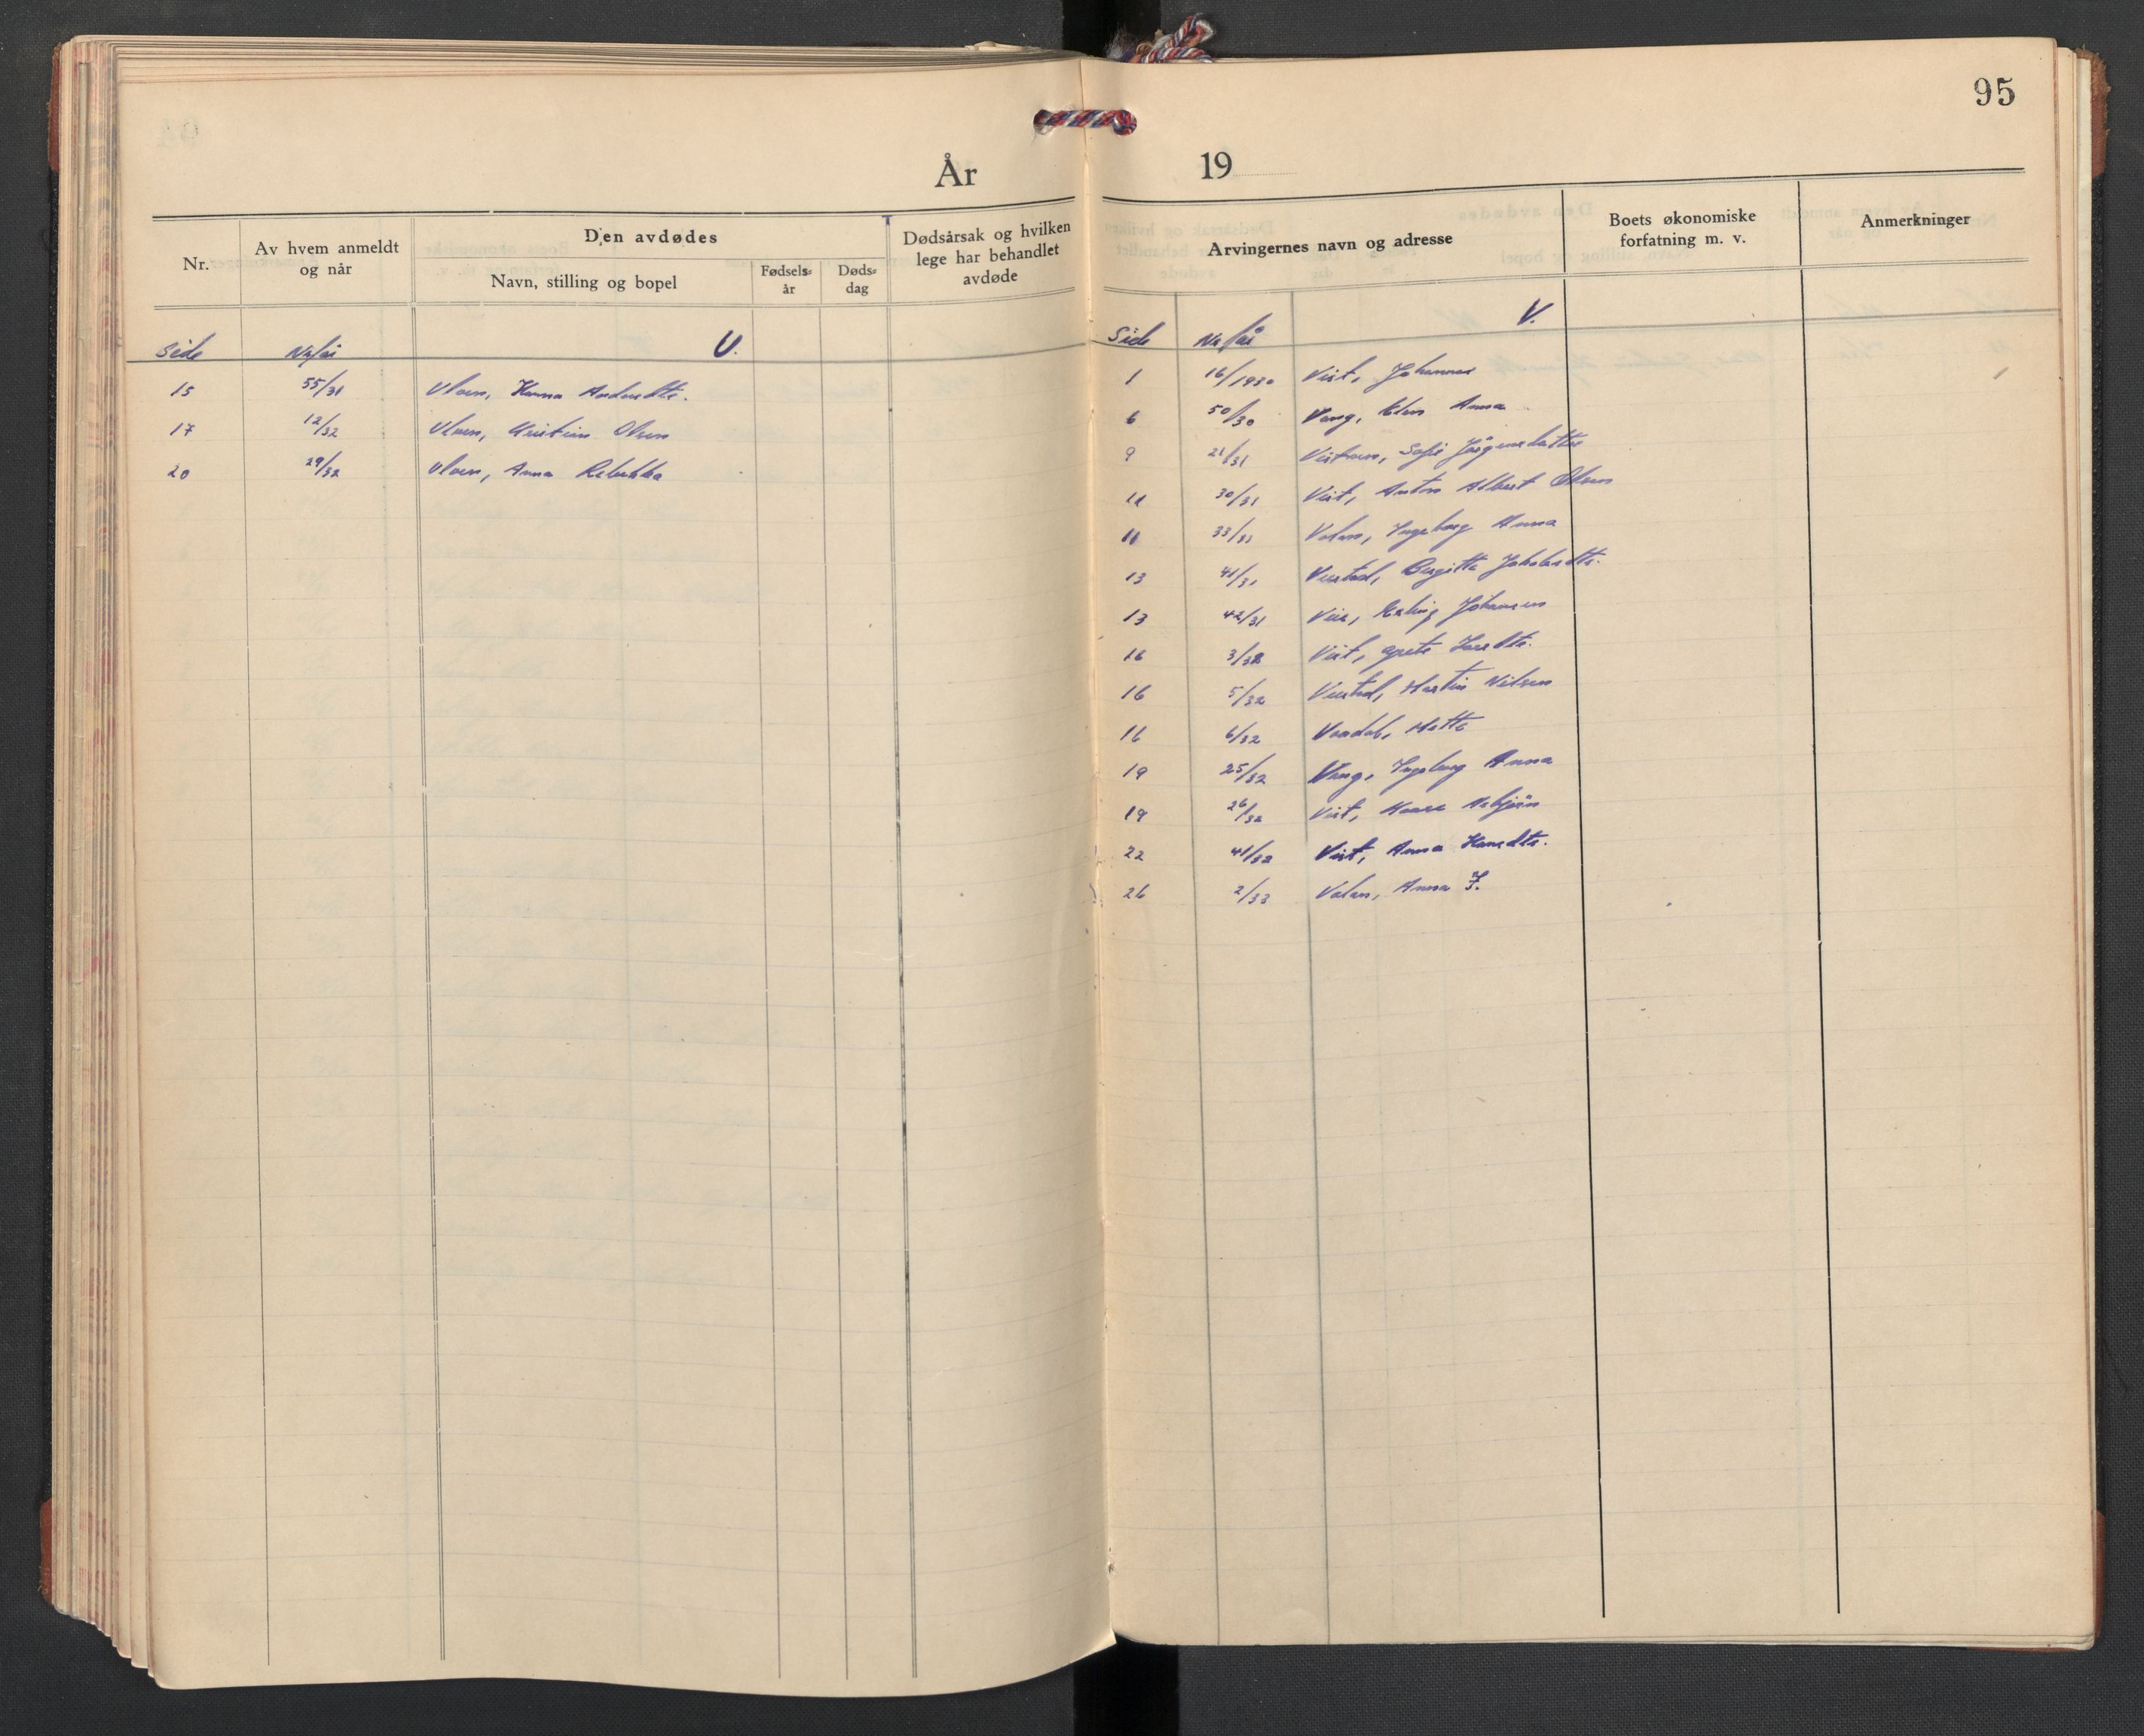 95
År 19
Nr.
Av hvem anmeldt
og når
Den avdødes
Navn, stilling og bopel
Fødsels-
år
Døds-
dag
Dødsårsak og hvilken
lege har behandlet
avdøde
Side Nr/år U.
15 55/31 Uloen, Hanna Andersdtr.
17 12/32 Uloen, Kristian Olsen
20 29/32 Uloen, Anna Rebekka
Arvingernes navn og adresse
Boets økonomiske
forfatning m. v.
Anmerkninger
Side Nr/år V.
1 16/1930 Vist, Johannes
6 50/30 Vang, Anna
9 21/31 Sofie Jørgensdatter
11 30/31 Vist, Anton Albert Olsen
11 33/31 Valan, Ingeborg Anna
13 41/31 Veistad, Birgitte
13 42/31 Johansen
16 3/32 Vist,
16 5/32 Veistad, Martin Nilsen
16 6/32 Mette
19 25/32 Vang, Ingeborg Anna
19 26/32 Vist, Kaare Asbjørn
22 41/32 Vist, Anna Hansdtr.
26 2/33 Valan, Anna J.